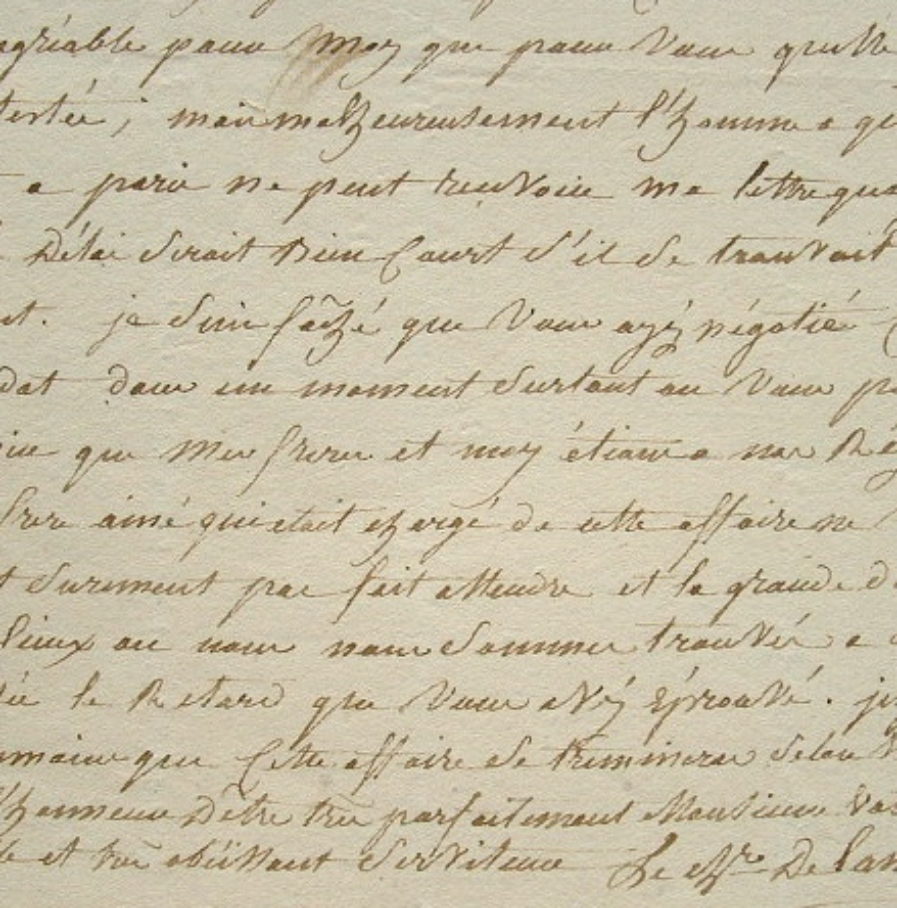 agréable pour moy que pour vous qu'elle
testée; mais malheureusement l'homme a qui
a paris ne peut renvoier ma lettre
Délai serait Bien Court s'il se trouvait
je suis fâché que vous ayéz négotié
dat dans un moment surtout ou vous
que Mes freres et moy étions a nos
frere ainé qui etait chargé de cette affaire ne
surement pas fait attendre et la grande
lieux ou nous nous sommes trouvés a
le Retard que vous avéz éprouvé. je
que Cette affaire se terminera selon
l'honneur D'être très parfaitement Monsieur
et très obëissant serviteur Le Ch.er De